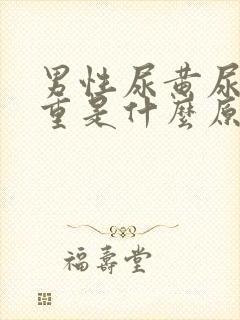 男性尿黄尿
重是什麼原
福壽堂